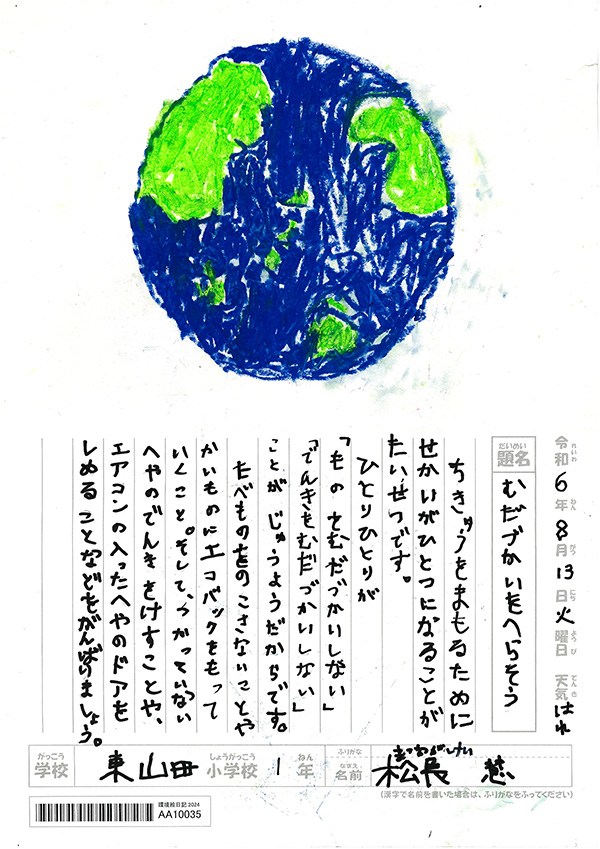 令和6年8月13日火曜日 天気はれ
題名 むだづかいをへらそう
ちきゅうをまもるために
せかいがひとつになることが
たいせつです。
ひとりひとりが
「ものをむだづかいしない」
「でんきをむだづかいしない」
ことがじゅうようだからです。
たべものをのこさないことや
かいものにエコバックをもって
いくこと。そして、つかっていない
へやのでんきをけすことや、
エアコンの入ったへやのドアを
しめることなどをがんばりましょう。
学校 東山田 小学校 1年 名前 松長 慧
(漢字で名前を書いた場合は、ふりがなをふってください)
環境絵日記2024
AA10035